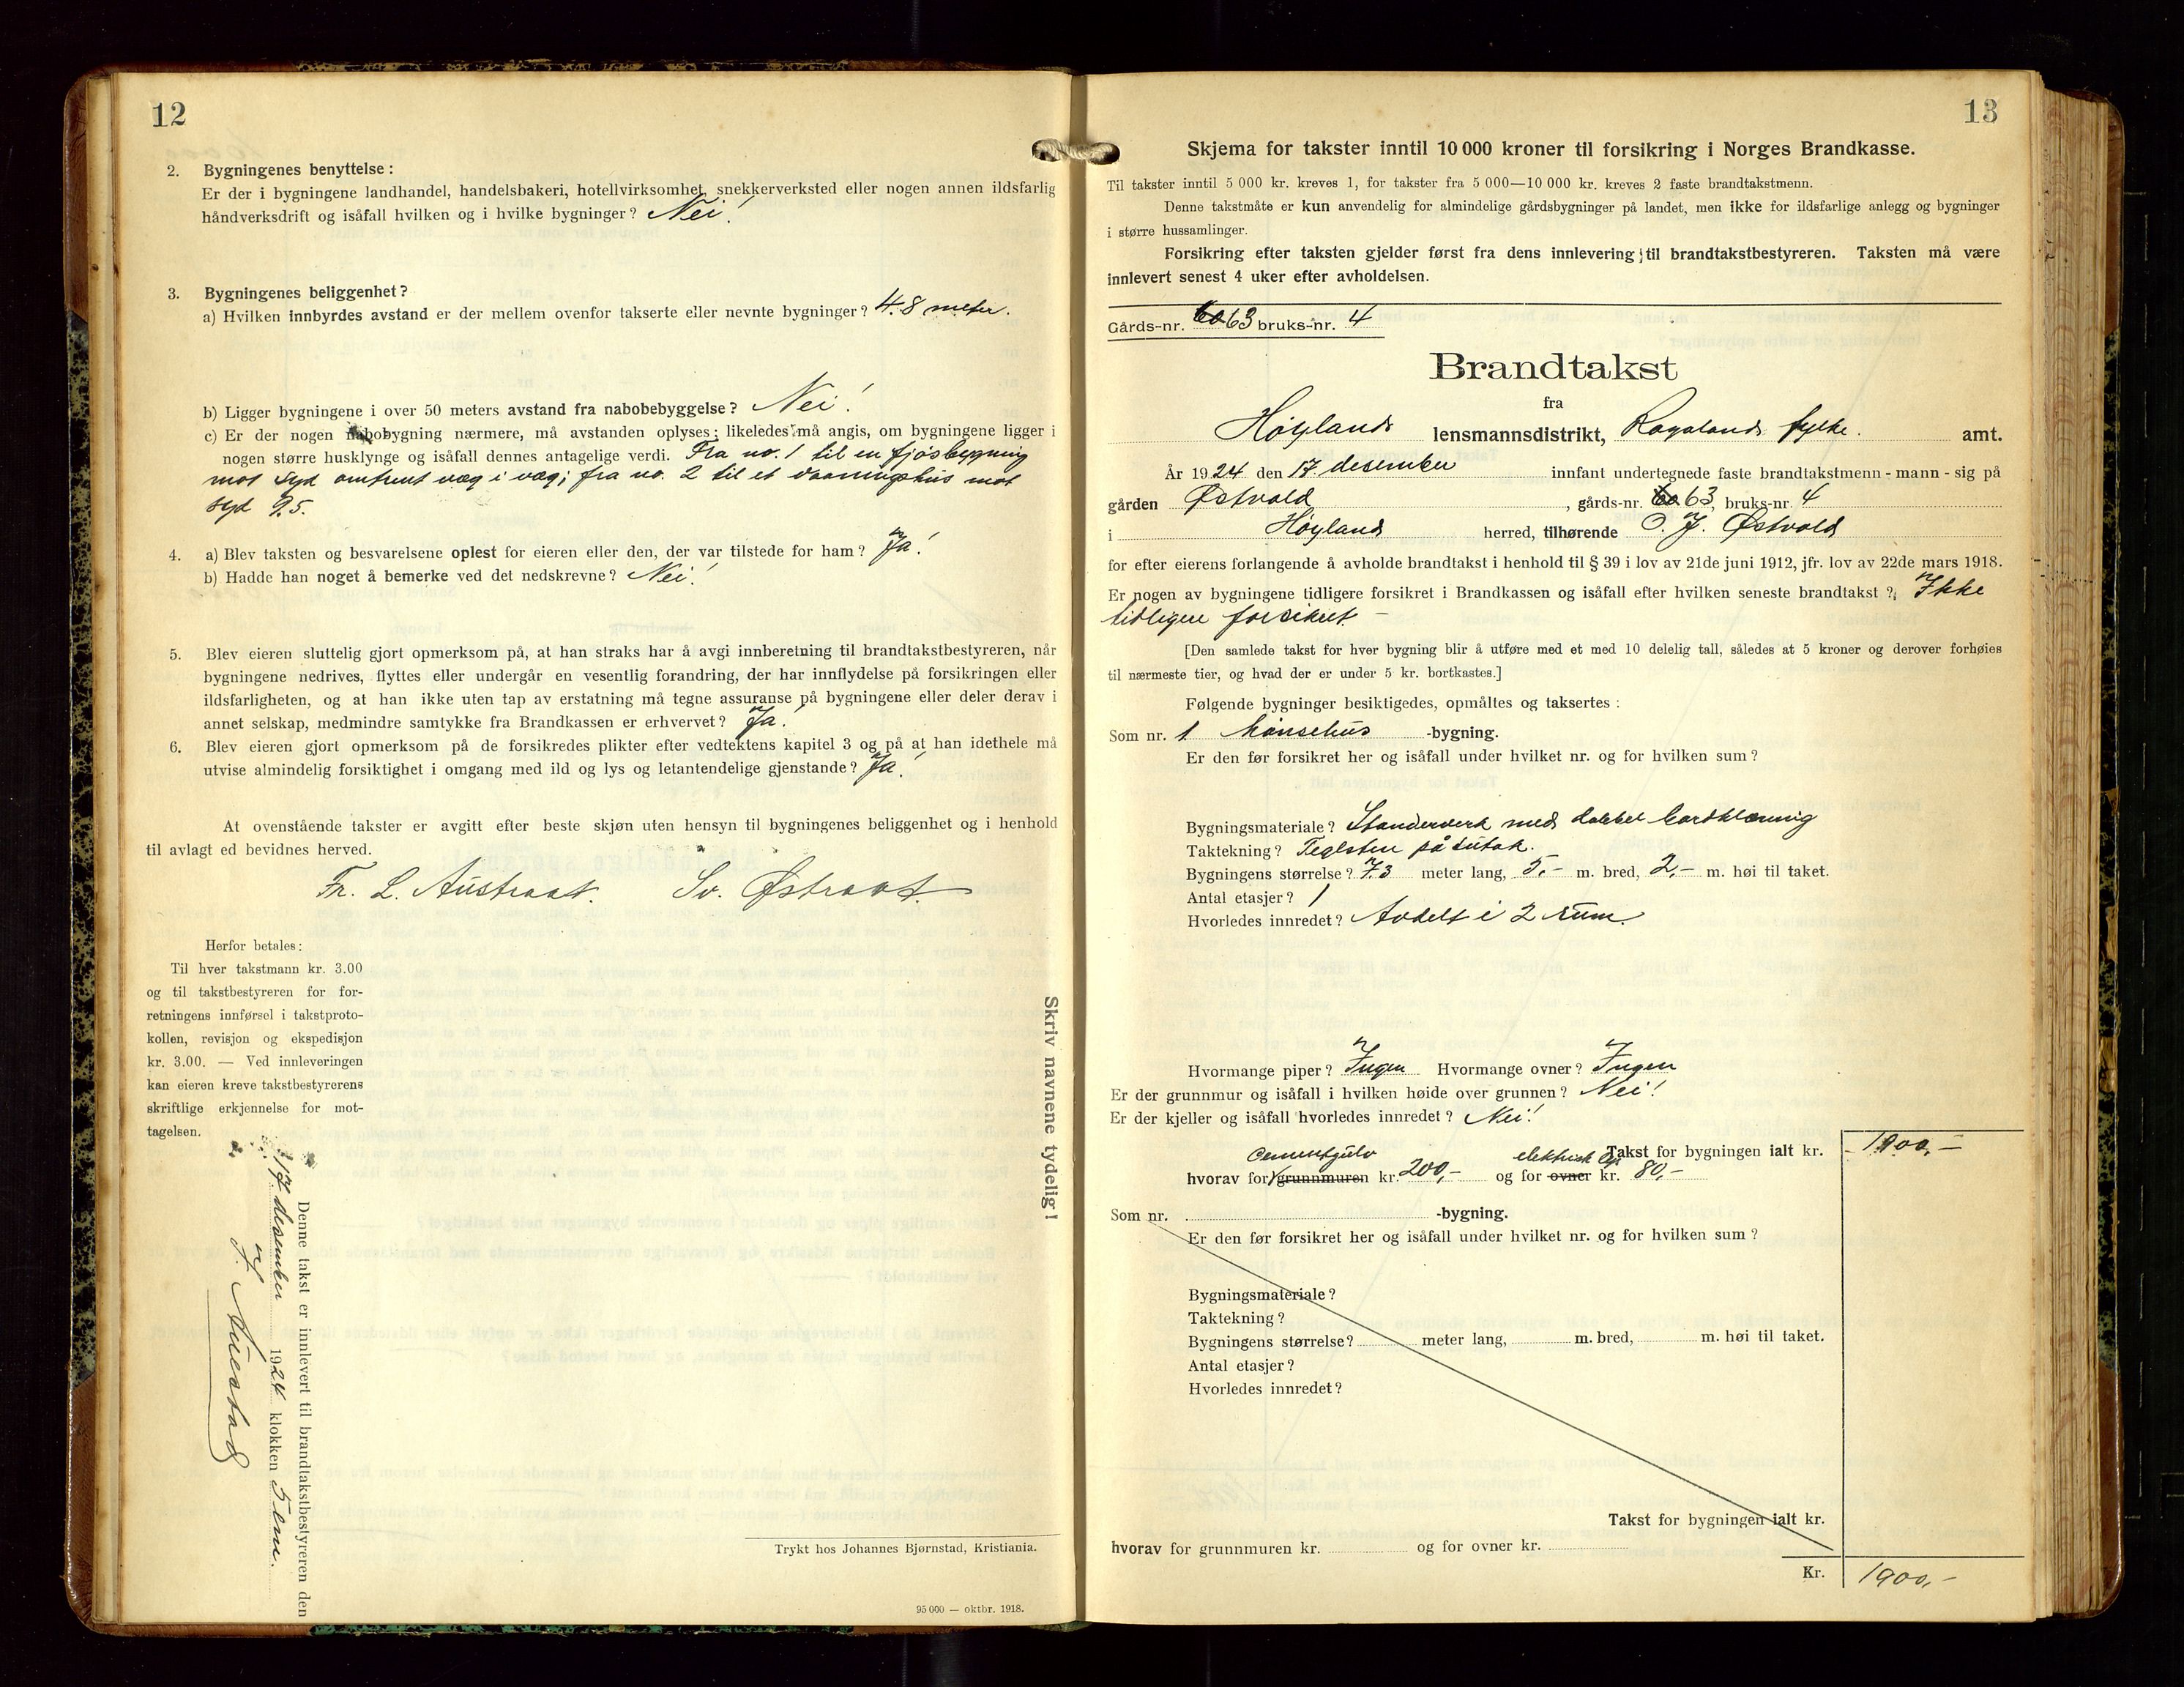 12
2. Bygningenes benyttelse:
Er der i bygningene landhandel, handelsbakeri, hotellvirksomhet, snekkerverksted eller nogen annen ildsfarlig
håndverksdrift og isåfall hvilken og i hvilke bygninger? Nei!
3. Bygningenes beliggenhet?
a) Hvilken innbyrdes avstand er der mellem ovenfor takserte eller nevnte bygninger? 4.8 meter.
b) Ligger bygningene i over 50 meters avstand fra nabobebyggelse? Nei!
c) Er der nogen nabobygning nærmere, må avstanden oplyses; likeledes må angis, om bygningene ligger i
nogen større husklynge og isåfall dennes antagelige verdi. Fra no. 1 til en fjøsbygning
mot syd omtrent væg i væg; fra no. 2 til et vaaningshus mot
syd 9.5.
4. a) Blev taksten og besvarelsene oplest for eieren eller den, der var tilstede for ham? Ja!
b) Hadde han noget å bemerke ved det nedskrevne? Nei!
5. Blev eieren sluttelig gjort opmerksom på, at han straks har å avgi innberetning til brandtakstbestyreren, når
bygningene nedrives, flyttes eller undergår en vesentlig forandring, der har innflydelse på forsikringen eller
ildsfarligheten, og at han ikke uten tap av erstatning må tegne assuranse på bygningene eller deler derav i
annet selskap, medmindre samtykke fra Brandkassen er erhvervet? Ja!
6. Blev eieren gjort opmerksom på de forsikredes plikter efter vedtektens kapitel 3 og på at han idethele må
utvise almindelig forsiktighet i omgang med ild og lys og letantendelige gjenstande? Ja!
At ovenstående takster er avgitt efter beste skjøn uten hensyn til bygningenes beliggenhet og i henhold
til avlagt ed bevidnes herved.
Fr. L. Austraat. Sv. Østraat.
Herfor betales:
Til hver takstmann kr. 3.00
og til takstbestyreren for for-
retningens innførsel i takstproto-
kollen, revisjon og ekspedisjon
kr. 3.00. — Ved innleveringen
kan eieren kreve takstbestyrerens
skriftlige erkjennelse for mot-
tagelsen.
Skriv navnene tydelig!
Denne takst er innlevert til brandtakstbestyreren den
17 desember 1924 klokken 5 em.
Trykt hos Johannes Bjørnstad, Kristiania.
95 000 — oktbr. 1918.
13
Skjema for takster inntil 10 000 kroner til forsikring i Norges Brandkasse.
Til takster inntil 5 000 kr. kreves 1, for takster fra 5 000—10 000 kr. kreves 2 faste brandtakstmenn.
Denne takstmåte er kun anvendelig for almindelige gårdsbygninger på landet, men ikke for ildsfarlige anlegg og bygninger
i større hussamlinger.
Forsikring efter taksten gjelder først fra dens innlevering til brandtakstbestyreren. Taksten må være
innlevert senest 4 uker efter avholdelsen.
Gårds-nr. 60 63 bruks-nr. 4
Brandtakst
fra
Høylands lensmannsdistrikt, Rogalands fylke. amt.
År 1924 den 17. desember innfant undertegnede faste brandtakstmenn - mann - sig på
gården Østvold, gårds-nr. 60 63, bruks-nr. 4
i Høyland herred, tilhørende O. J. Østvold
for efter eierens forlangende å avholde brandtakst i henhold til § 39 i lov av 21de juni 1912, jfr. lov av 22de mars 1918.
Er nogen av bygningene tidligere forsikret i Brandkassen og isåfall efter hvilken seneste brandtakst? Ikke
tidligere forsikret —
[Den samlede takst for hver bygning blir å utføre med et med 10 delelig tall, således at 5 kroner og derover forhøies
til nærmeste tier, og hvad der er under 5 kr. bortkastes.]
Følgende bygninger besiktigedes, opmåltes og taksertes:
Som nr. 1 hønsehus -bygning.
Er den før forsikret her og isåfall under hvilket nr. og for hvilken sum?
Bygningsmateriale? Standerverk med dobbel bordklædning
Taktekning? Teglsten på sutak.
Bygningens størrelse? 7.3 meter lang, 5,- m. bred, 2,- m. høi til taket.
Antal etasjer? 1
Hvorledes innredet? Avdelt i 2 rum.
Hvormange piper? Ingen Hvormange ovner? Ingen
Er der grunnmur og isåfall i hvilken høide over grunnen? Nei!
Er der kjeller og isåfall hvorledes innredet? Nei!
Takst for bygningen ialt kr. 1900,-
cementgulv elektrisk lys
hvorav for grunnmuren kr. 200,- og for ovner kr. 80,-
Som nr. -bygning.
Er den før forsikret her og isåfall under hvilket nr. og for hvilken sum?
Bygningsmateriale?
Taktekning?
Bygningens størrelse? meter lang, m. bred, m. høi til taket.
Antal etasjer?
Hvorledes innredet?
Takst for bygningen ialt kr.
hvorav for grunnmuren kr. og for ovner kr.
Kr. 1900,-